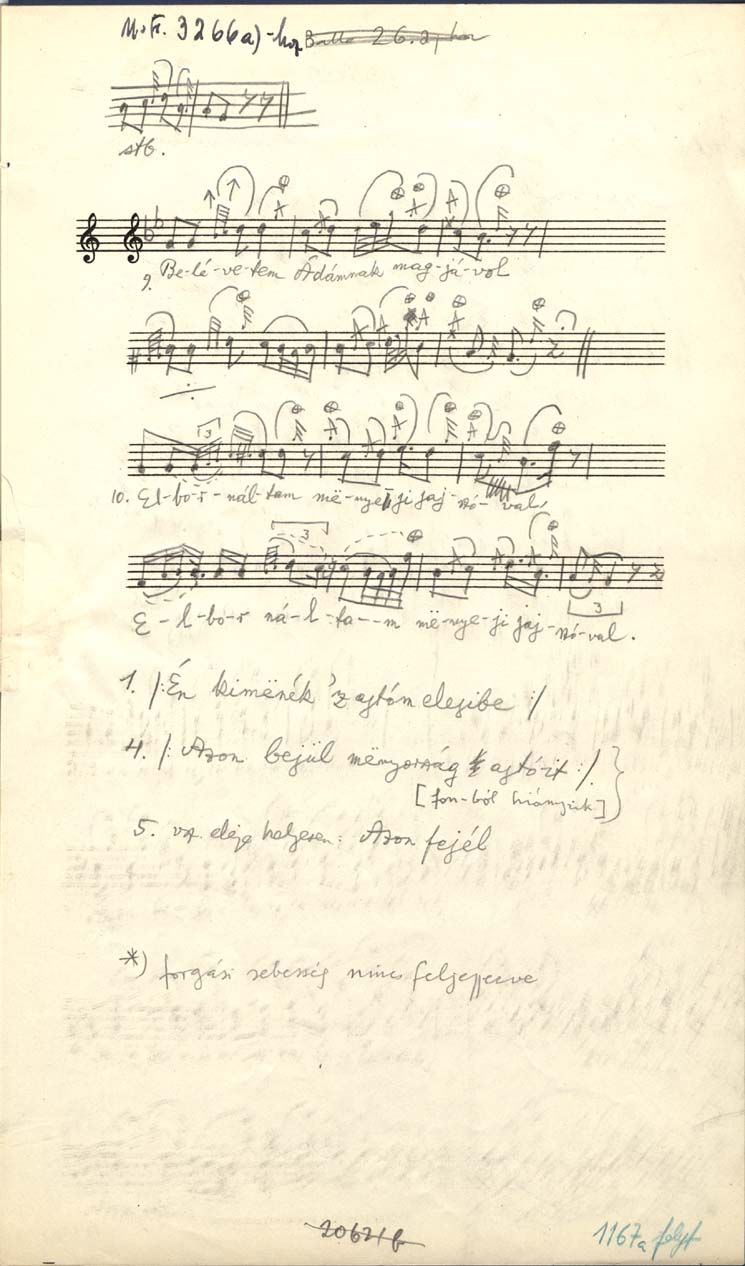 M.F. 3266a)-hoz Balla 26.a) hoz
stb.
9. Be-lé-ve-tem Ádámnak mag-já-vol
10. El-bo-r-nál-tam më-nye-ji jaj-szó-val,
3
3
E-l-bo-r ná-l-ta--m më-nye-ji jaj-szó-val.
3
1. /: Én kimënék 'z ajtóm elejibe :/
4. /: Azon bejül mënyország ajtóit :/
[fon-ból hiányzik]
5. vsz. eleje helyesen: Azon fejél
*) forgási sebesség nincs feljegyezve
20621b
1167a folyt